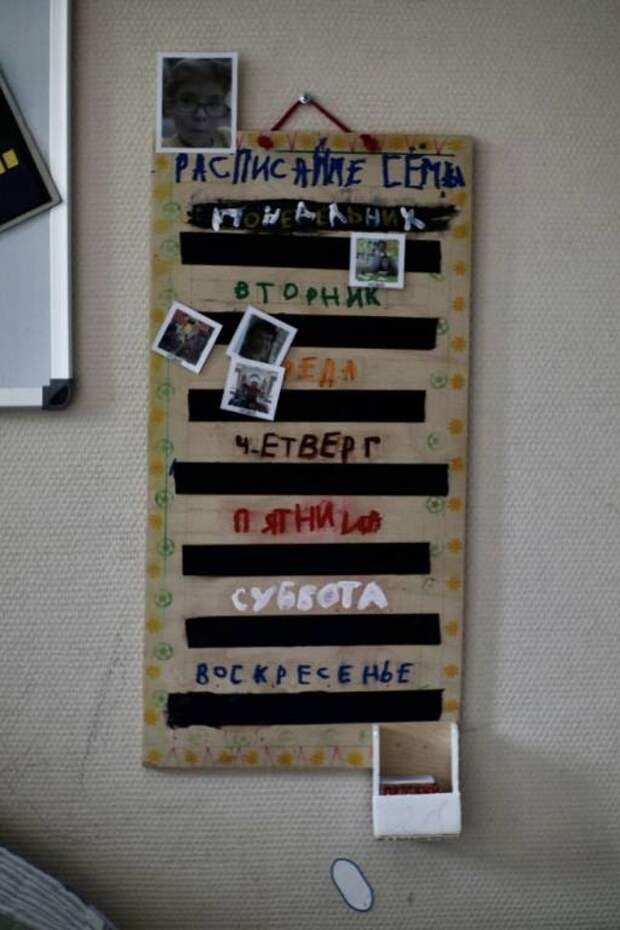 РАСПИСАНИЕ СЁМЫ
ПОНЕДЕЛЬНИК
ВТОРНИК
ЕДА
ЧЕТВЕРГ
ПЯТНИЦА
СУББОТА
ВОСКРЕСЕНЬЕ